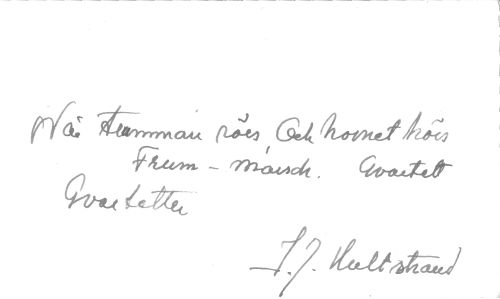 När trumman röes Och hornet höis
Frum - märsch. Qvartett
Qvartetter
J. J. Hultstrand